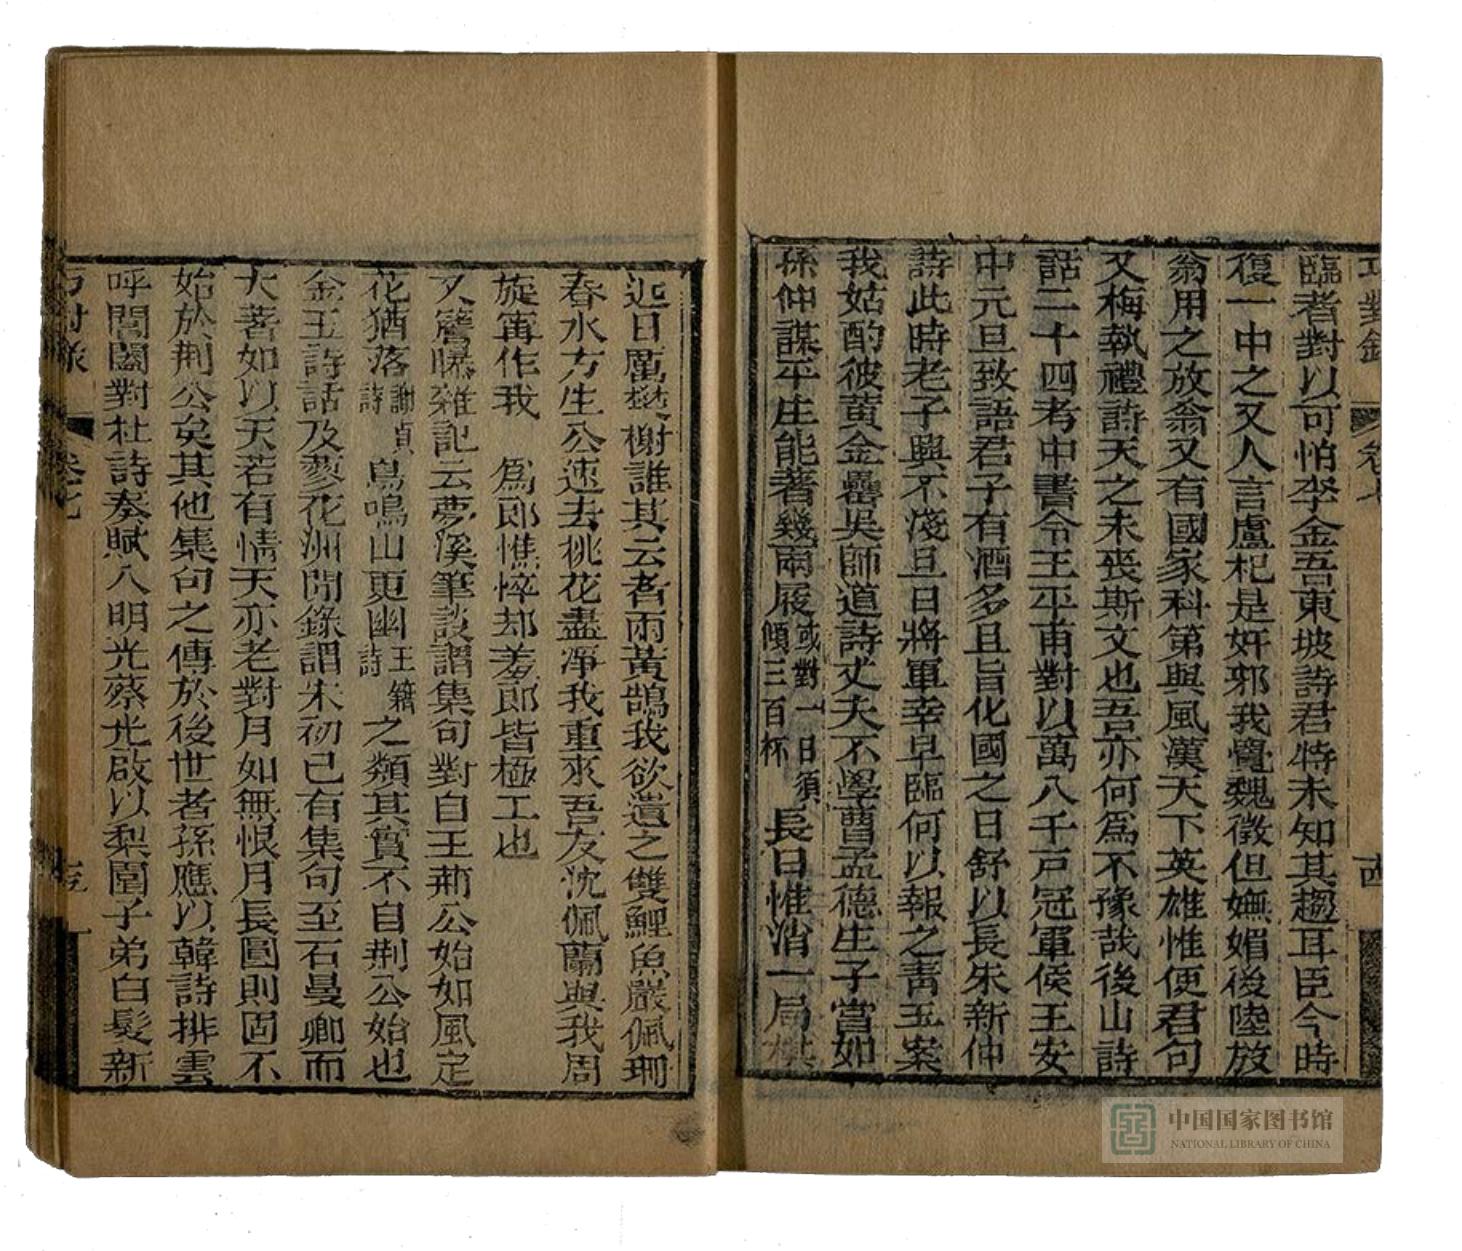 巧對錄 卷七 西
臨者對以可怕李金吾東坡詩君特未知其趣耳臣今時
復一中之又人言盧杞是奸邪我覺魏徵但嫵媚後陸放
翁用之放翁又有國家科第與風漢天下英雄惟使君句
又梅執禮詩天之未喪斯文也吾亦何為不豫哉後山詩
話二十四考中書令王平甫對以萬八千戶冠軍侯王安
中元旦致語君子有酒多且旨化國之日舒以長朱新仲
詩此時老子興不淺旦日將軍幸早臨何以報之青玉案
我姑酌彼黃金罍吳師道詩丈夫不學曹孟德生子當如
孫仲謀平生能著幾兩屐或對一日須傾三百杯長日惟消一局棋
近日厲樊榭誰其云者兩黃鵠我欲遺之雙鯉魚嚴佩珊
春水方生公速去桃花盡淨我重來吾友沈佩蘭與我周
旋甯作我 為郎憔悴却羞郎皆極工也
又簷曝雜記云夢溪筆談謂集句對自王荊公始如風定
花猶落謝貞詩鳥鳴山更幽王籍詩之類其實不自荊公始也
金玉詩話及蓼花洲閒錄謂宋初已有集句至石曼卿而
大著如以天若有情天亦老對月如無恨月長圓則固不
始於荊公矣其他集句之傳於後世者孫應以韓詩排雲
呼閶闔對杜詩奏賦入明光蔡光啟以梨園子弟白髮新
巧對錄 卷七
中国国家图书馆
NATIONAL LIBRARY OF CHINA